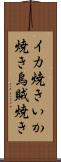 イカ焼きいか
焼き烏賊焼き